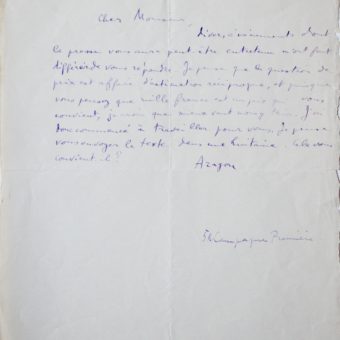 Cher Monsieur,
Divers événements dont
la presse vous aura peut être entretenu m'ont fait
différer de vous répondre. Je pense que la question de
prix est affaire d'estimation réciproque, et puisque
vous pensez que mille francs est un prix qui vous
convient, je crois que mieux vaut J'ai
donc commencé à travailler pour vous. Je pense
vous envoyer le texte dans une huitaine. Cela vous
convient-il?
Aragon
Campagne Première